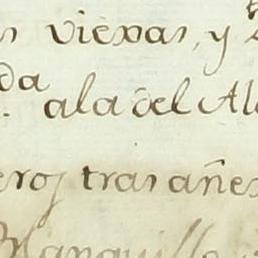 s viexas, y
da
ala del Al
eros tras añes
Blanquillo